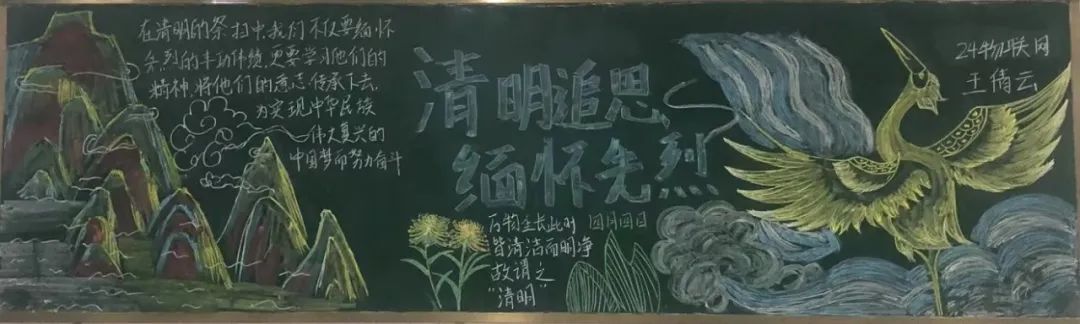 在清明的祭扫中我们不仅要缅怀
先烈的丰功伟绩,更要学习他们的
精神,将他们的意志传承下去,
为实现中华民族
伟大复兴的
中国梦而努力奋斗
清明追思
缅怀先烈
万物生长此时
皆清洁而明净
故谓之
“清明”
四月四日
24物联网
王倩云